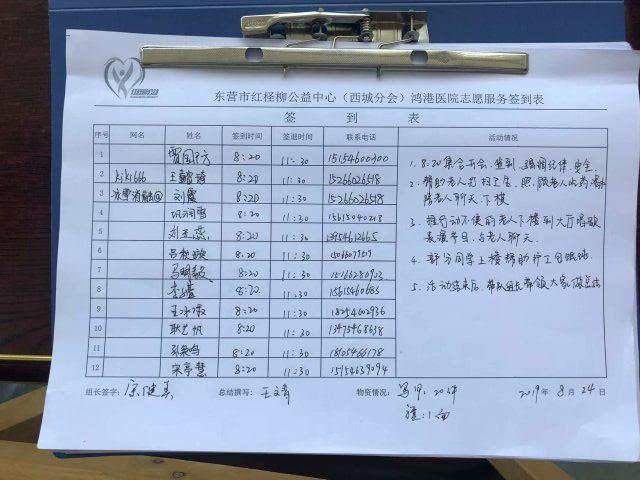 东营市红柽柳公益中心（西城分会）鸿港医院志愿服务签到表
签 到 表
序号 网名 姓名 签到时间 签退时间 联系电话 活动情况
1 贾国方 8:20 11:30 15154600300
2 kiki666 王 8:20 11:30 15266026518
3 冰雪消融@ 刘霞 8:20 11:30 15266026518
4 巩润雪 8:20 11:30 15615040218
5 刘玉蕊 8:20 11:30
6 吕 8:20 11:30
7 马 8:20 11:30 15166280903
8 李 8:20 11:30 15615460685
9 王冰 8:20 11:30 18254602936
10 耿艺帆 8:20 11:30 13475468638
11 8:20 11:30 18105466178
12 宋亭慧 8:20 11:30 15154639094
1. 8.20集合开会、签到、强调纪律、安全.
2. 帮助老人打扫卫生、照顾老人
陪老人聊天、下楼
3. 推行动不便的老人下楼到大厅唱歌
表演节目、与老人聊天.
4. 部分同学上楼帮助护工包
5. 活动结束后 带队组长带领大家做总结
组长签字： 宗健美 总结撰写： 王文青 物资情况： 马甲：20件 2019 年 8 月 24 日
旗：1面